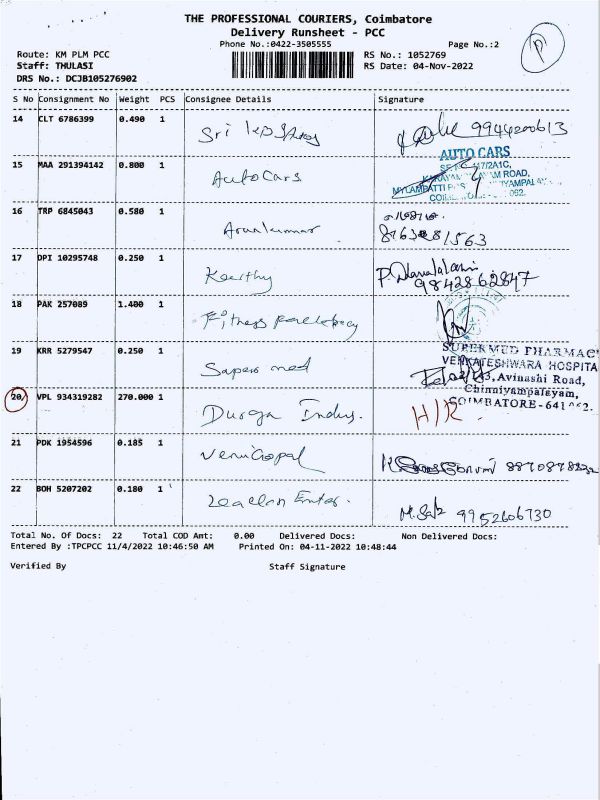 THE PROFESSIONAL COURIERS, Coimbatore
Delivery Runsheet - PCC
Phone No.:0422-3505555
Page No.:2
P
Route: KM PLM PCC
RS No.: 1052769
Staff: THULASI
RS Date: 04-Nov-2022
DRS No.: DCJB105276902
S No Consignment No Weight PCS Consignee Details Signature
14 CLT 6786399 0.490 1 Sri 9944200613
15 MAA 291394142 0.800 1 AutoCars
AUTO CARS
17/2A1C,
ROAD,
MYLAMPATTI
16 TRP 6845043 0.580 1 Arunkumar
17 DPI 10295748 0.250 1 Keerthy
9842862847
18 PAK 257089 1.400 1 Fitness
19 KRR 5279547 0.250 1 Supero med
SUPERMED PHARMAC
VENKATESHWARA HOSPITA
Avinashi Road,
Chinniyampalayam,
COIMBATORE-641
20 VPL 934319282 270.000 1 Durga Indus. H/R
21 PDK 1954596 0.185 1 VenuGopal
22 BOH 5207202 0.180 1
9952606730
Total No. Of Docs: 22 Total COD Amt: 0.00 Delivered Docs: Non Delivered Docs:
Entered By :TPCPCC 11/4/2022 10:46:50 AM Printed On: 04-11-2022 10:48:44
Verified By Staff Signature